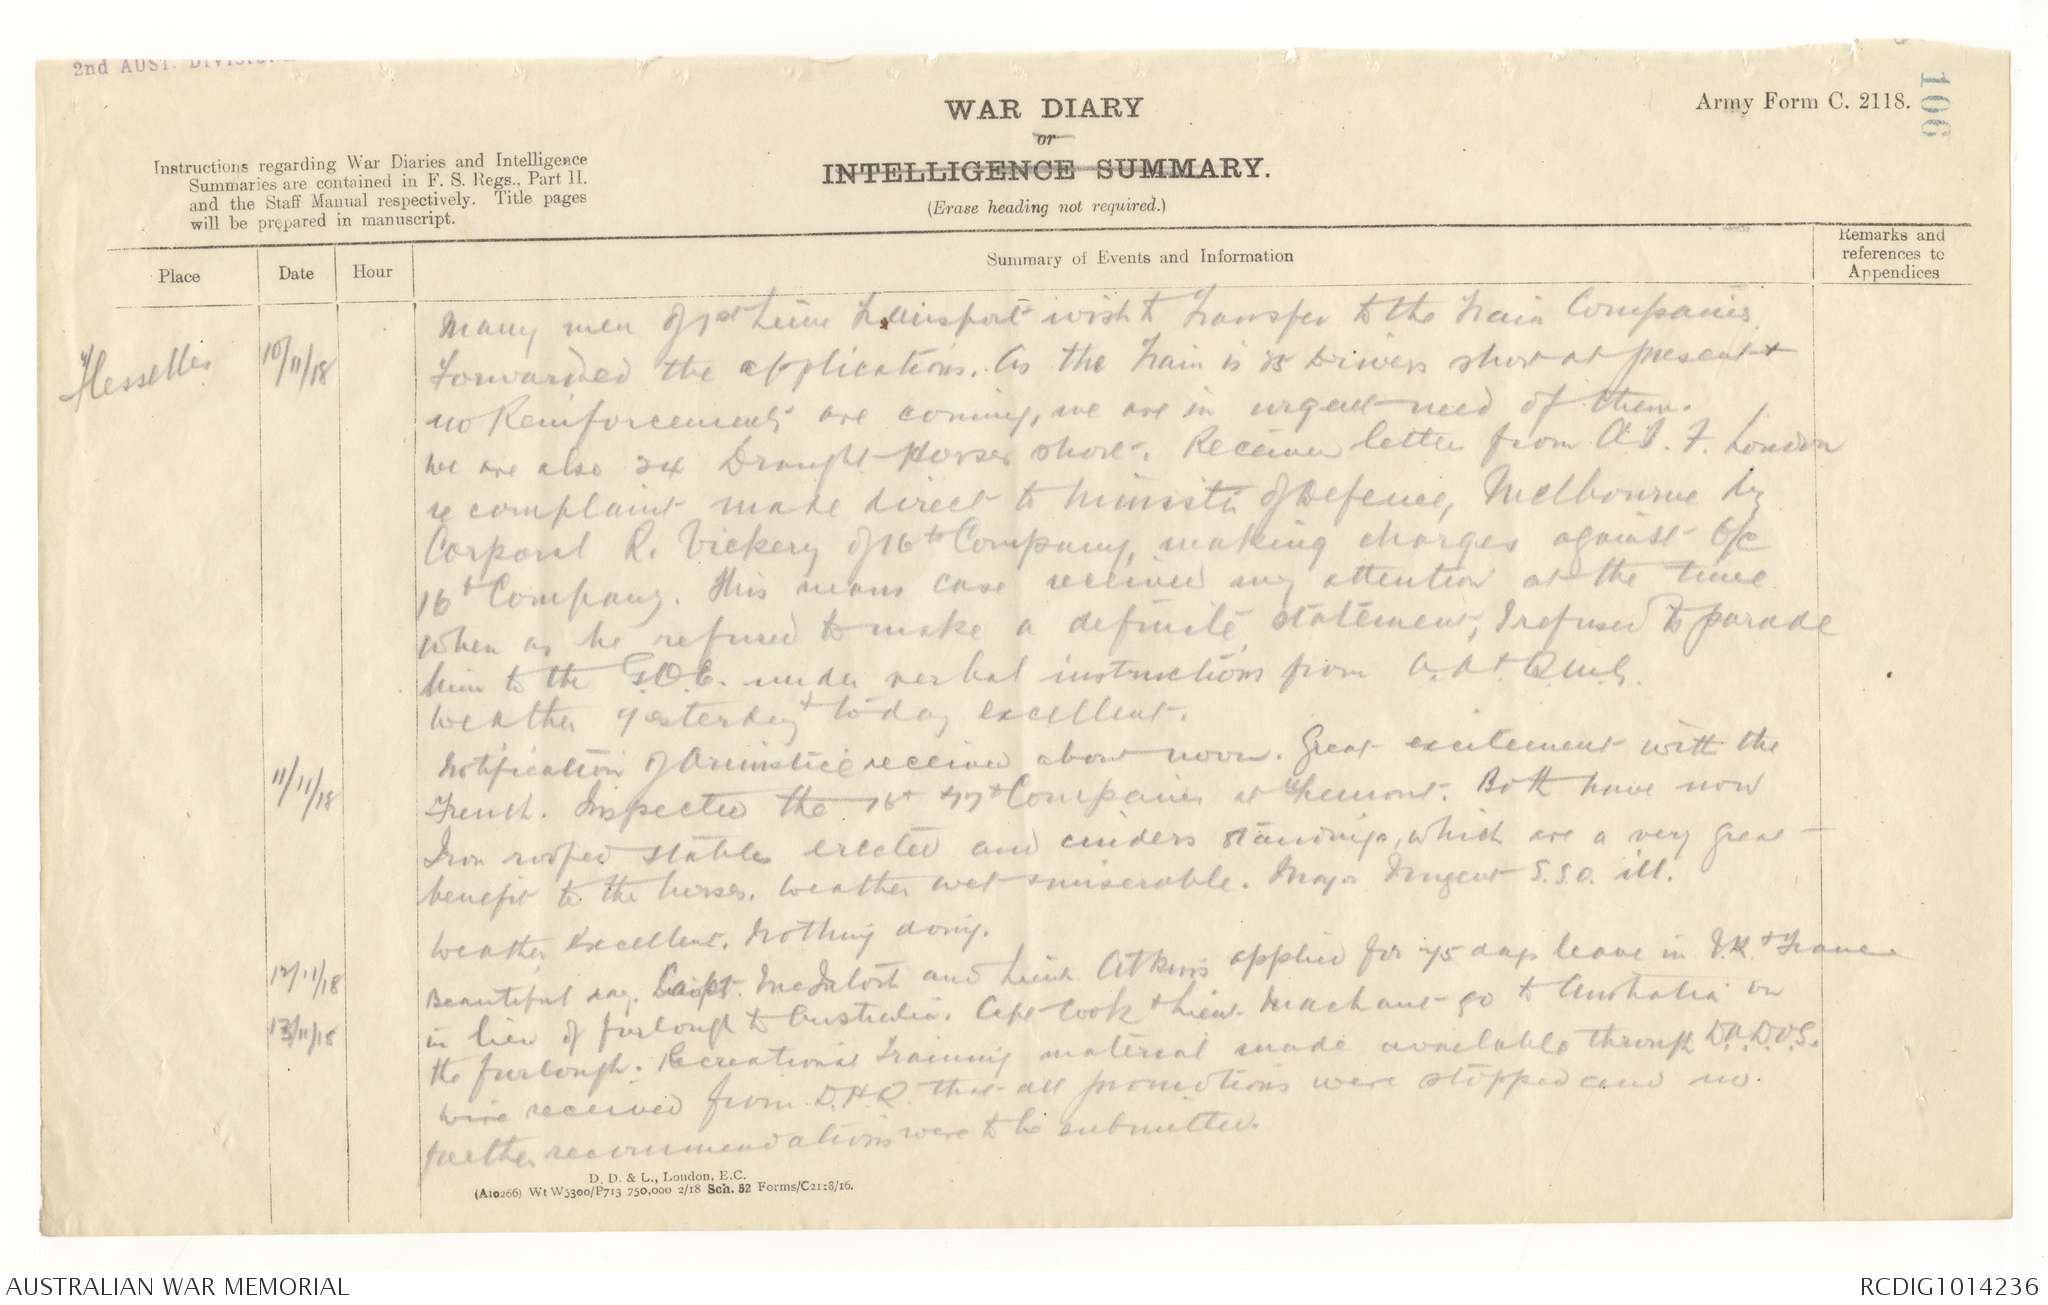 2nd AUST. DIVISI
106
WAR DIARY
or
INTELLIGENCE SUMMARY.
(Erase heading not required.)
Army Form C. 2118.
Instructions regarding War Diaries and Intelligence
Summaries are contained in F. S. Regs., Part II.
and the Staff Manual respectively. Title pages
will be prepared in manuscript.
Place
Date
Hour
Summary of Events and Information
Remarks and
references to
Appendices
Flesselles
10/11/18
Many men of 1st Line Transport wish to Transfer to the Train Companies.
Forwarded the applications. As the Train is 35 Drivers short at present +
no Reinforcements are coming, we are in urgent need of them.
We are also 24 Draught Horses short. Received letter from A.I.F. London
re complaint made direct to Minister of Defence, Melbourne by
Corporal R. Vickery of 16th Company, making charges against O/C
16th Company. This mans case received my attention at the time
when as he refused to make a definite statement, I refused to parade
him to the G.O.C. under verbal instructions from A.A + Q.M.G.
Weather yesterday + to-day excellent.
11/11/18
Notification of Armistice received about noon. Great excitement with the
French. Inspected the 16th + 17th Companies at Vremont. Both have now
Iron roofed stables erected and cinders standings, which are a very great
benefit to the horses. Weather wet + miserable. Major Nugent S.S.O. ill.
Weather Excellent. Nothing doing.
12/11/18
Beautiful day. Capt. McIntosh and Lieut Atkins applied for 75 days leave in U.K. + France
13/11/18
in lieu of furlough to Australia. Capt Cook + Lieut. Marchant go to Australia on
the furlough. Recreational Training material made available through D.A.D.O.S.
Wire received from D.H.Q. that all promotions were stopped and no
further recommendations were to be submitted.
D. D. & L., London, E.C.
(A10266) Wt W5300/P713 750,000 2/18 Sch. 52 Forms/C2118/16.
AUSTRALIAN WAR MEMORIAL
RCDIG1014236